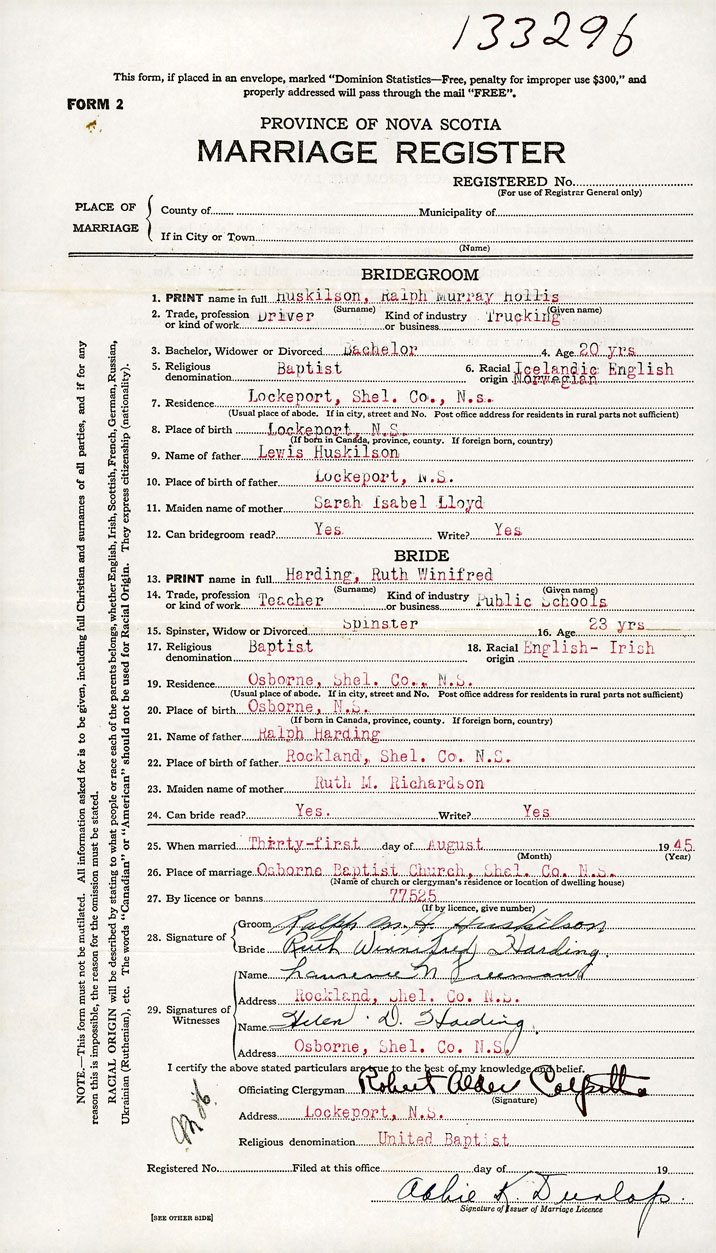 133296
This form, if placed in an envelope, marked "Dominion Statistics—Free, penalty for improper use $300," and
properly addressed will pass through the mail "FREE".
FORM 2
PROVINCE OF NOVA SCOTIA
MARRIAGE REGISTER
REGISTERED No.
(For use of Registrar General only)
PLACE OF MARRIAGE
County of Municipality of
If in City or Town
(Name)
BRIDEGROOM
1. PRINT name in full Huskilson, Ralph Murray Hollis
(Surname) (Given name)
2. Trade, profession or kind of work Driver Kind of industry or business Trucking
3. Bachelor, Widower or Divorced Bachelor 4. Age 20 yrs
5. Religious denomination Baptist 6. Racial origin Icelandic English Norwegian
7. Residence Lockeport, Shel. Co., N.s.
(Usual place of abode. If in city, street and No. Post office address for residents in rural parts not sufficient)
8. Place of birth Lockeport, N.S.
(If born in Canada, province, county. If foreign born, country)
9. Name of father Lewis Huskilson
10. Place of birth of father Lockeport, N.S.
11. Maiden name of mother Sarah Isabel Lloyd
12. Can bridegroom read? Yes Write? Yes
BRIDE
13. PRINT name in full Harding, Ruth Winifred
(Surname) (Given name)
14. Trade, profession or kind of work Teacher Kind of industry or business Public Schools
15. Spinster, Widow or Divorced Spinster 16. Age 23 yrs
17. Religious denomination Baptist 18. Racial origin English- Irish
19. Residence Osborne, Shel. Co., N.S.
(Usual place of abode. If in city, street and No. Post office address for residents in rural parts not sufficient)
20. Place of birth Osborne, N.S.
(If born in Canada, province, county. If foreign born, country)
21. Name of father Ralph Harding
22. Place of birth of father Rockland, Shel. Co. N.S.
23. Maiden name of mother Ruth M. Richardson
24. Can bride read? Yes. Write? Yes
25. When married Thirty-first day of August 1945
(Month) (Year)
26. Place of marriage Osborne Baptist Church, Shel. Co. N.S.
(Name of church or clergyman's residence or location of dwelling house)
27. By licence or banns 77525
(If by licence, give number)
28. Signature of
Groom Ralph M. H. Huskilson
Bride Ruth Winnifred Harding.
29. Signatures of Witnesses
Name Laurence N Freeman
Address Rockland, Shel. Co. N.S.
Name Helen D. Harding.
Address Osborne, Shel. Co. N.S.
I certify the above stated particulars are true to the best of my knowledge and belief.
Officiating Clergyman Robert Alden
(Signature)
Address Lockeport, N.S.
Religious denomination United Baptist
Registered No. Filed at this office day of 19
Abbie K. Dunlop.
Signature of Issuer of Marriage Licence
[SEE OTHER SIDE]
NOTE.—This form must not be mutilated. All information asked for is to be given, including full Christian and surnames of all parties, and if for any
reason this is impossible, the reason for the omission must be stated.
RACIAL ORIGIN will be described by stating to what people or race each of the parents belongs, whether English, Irish, Scottish, French, German, Russian,
Ukrainian (Ruthenian), etc. The words "Canadian" or "American" should not be used for Racial Origin. They express citizenship (nationality).